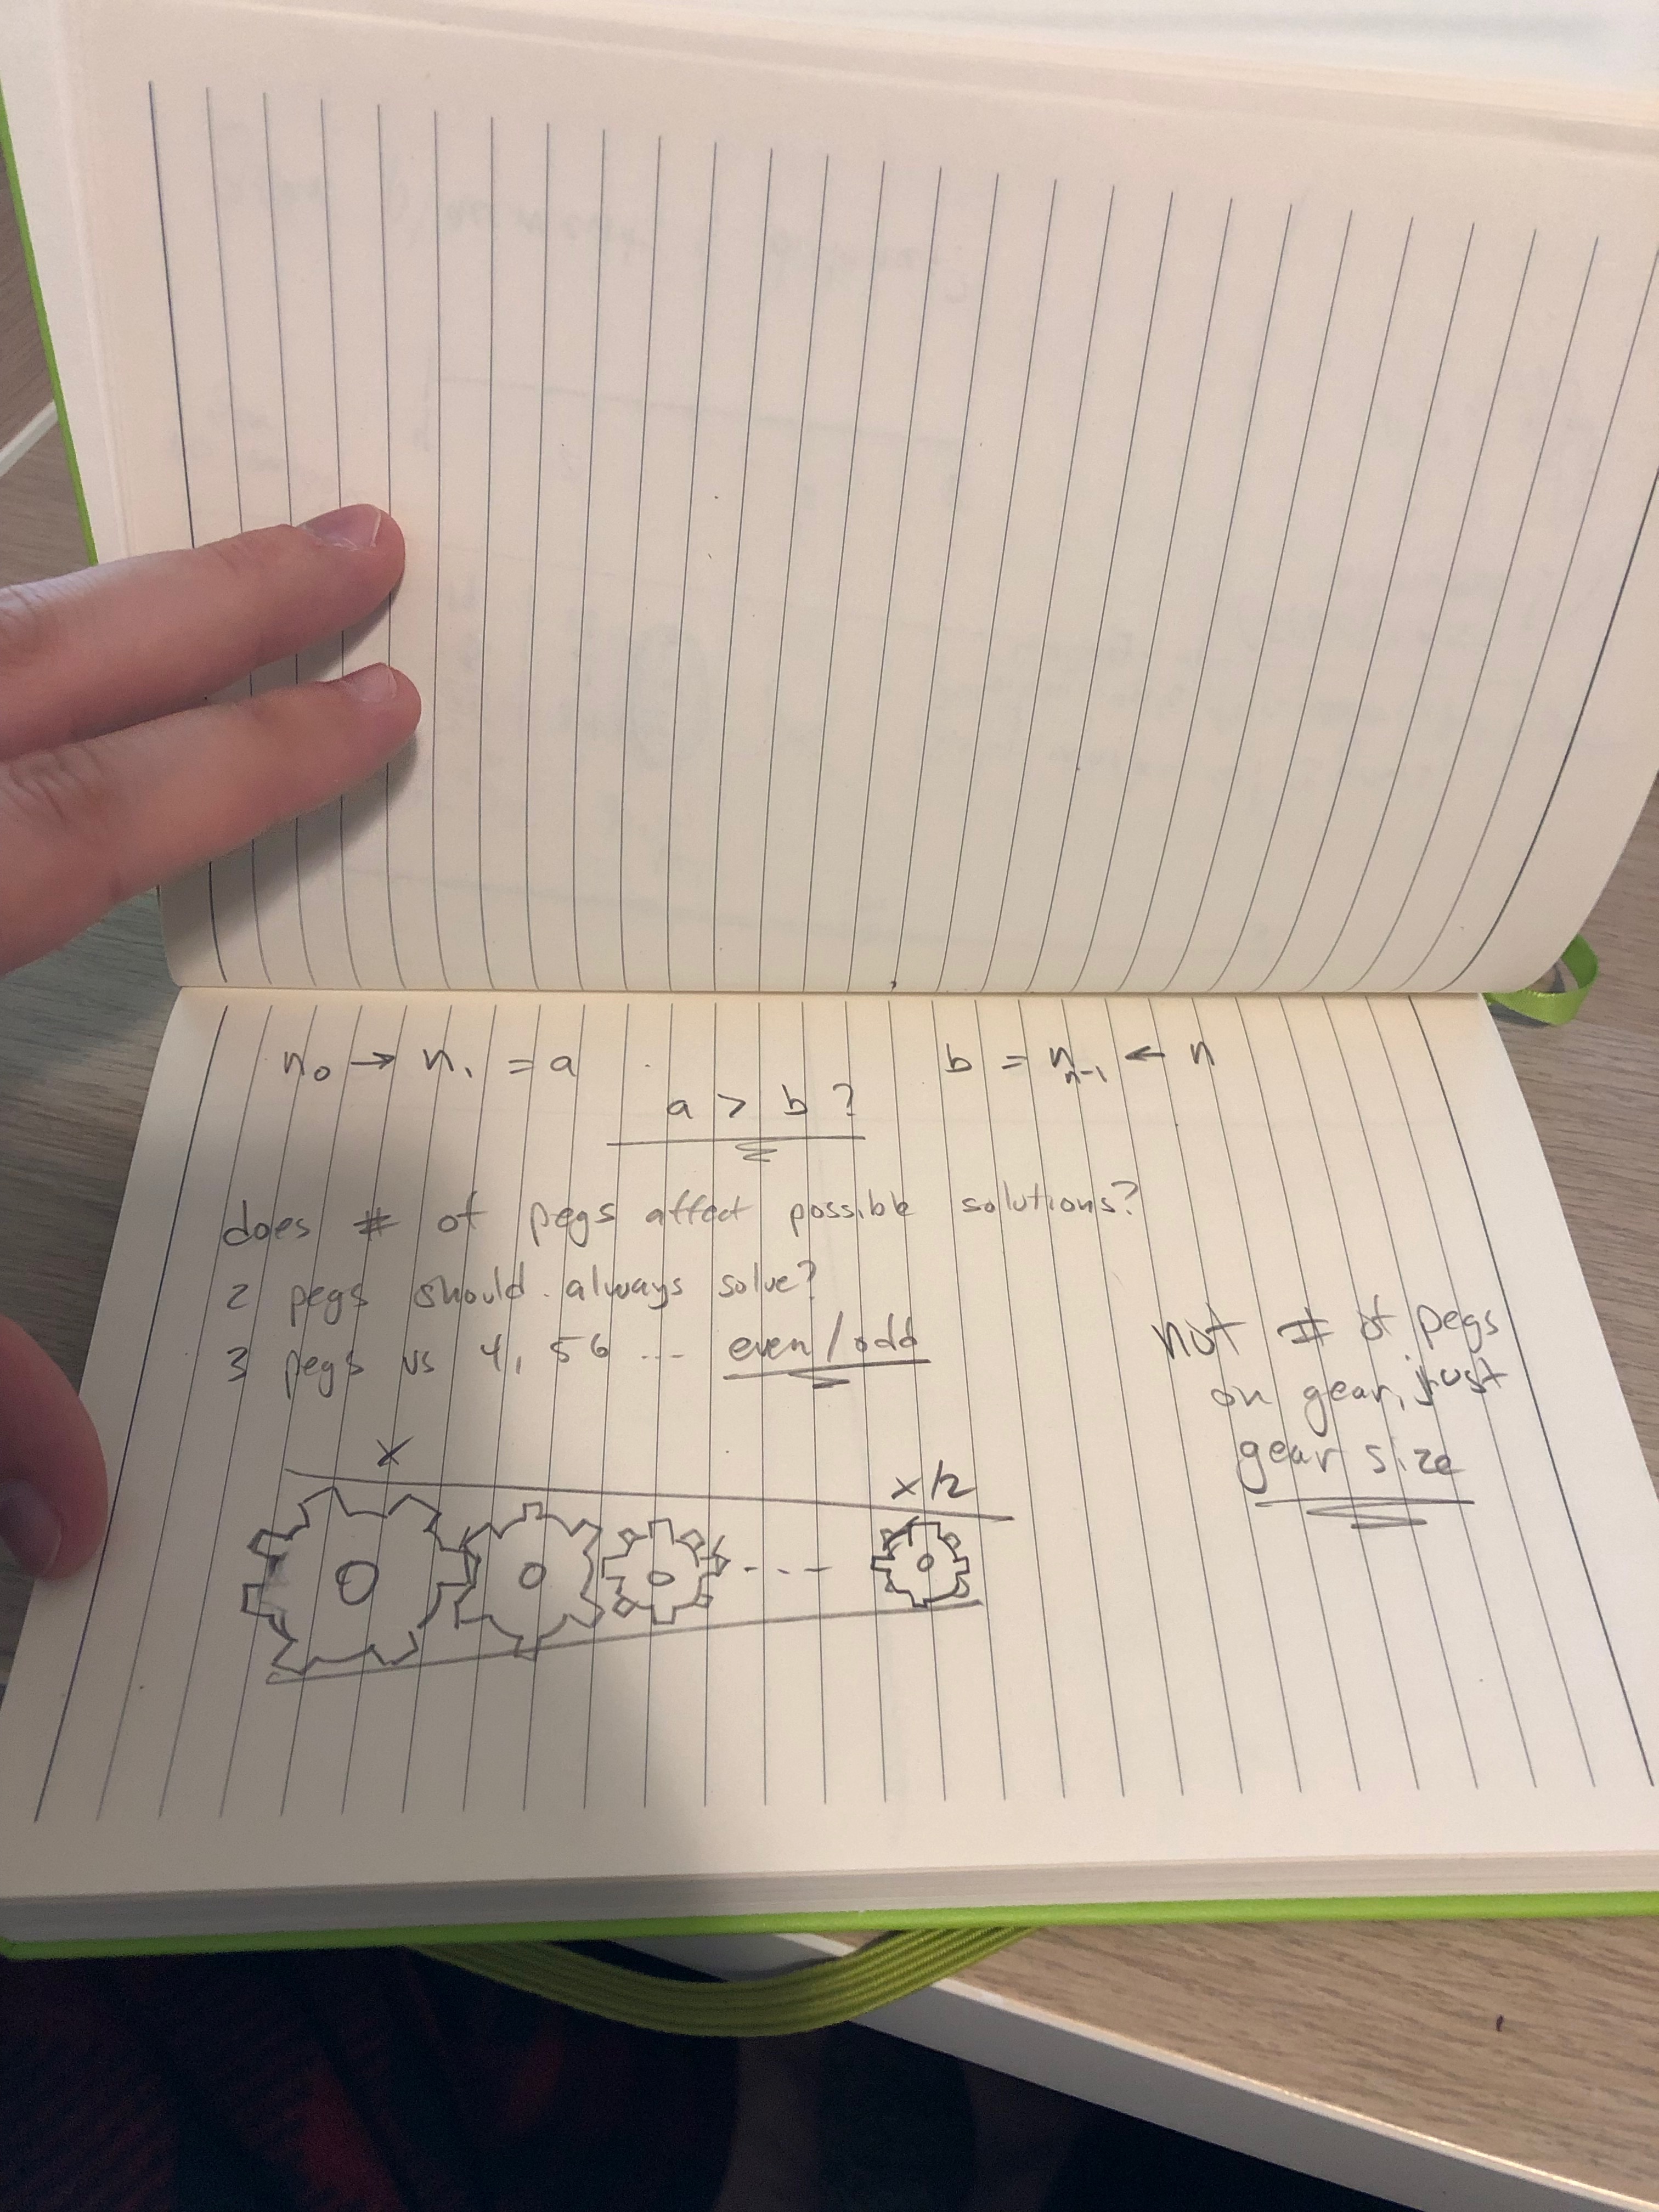 n₀ → n₁ = a
b = nₙ₋₁ ← n
a > b ?
does # of pegs affect possible solutions?
2 pegs should always solve?
3 pegs vs 4, 5 6 ... even/odd
not # of pegs
on gear, just
gear size
x
x/2
- - - -